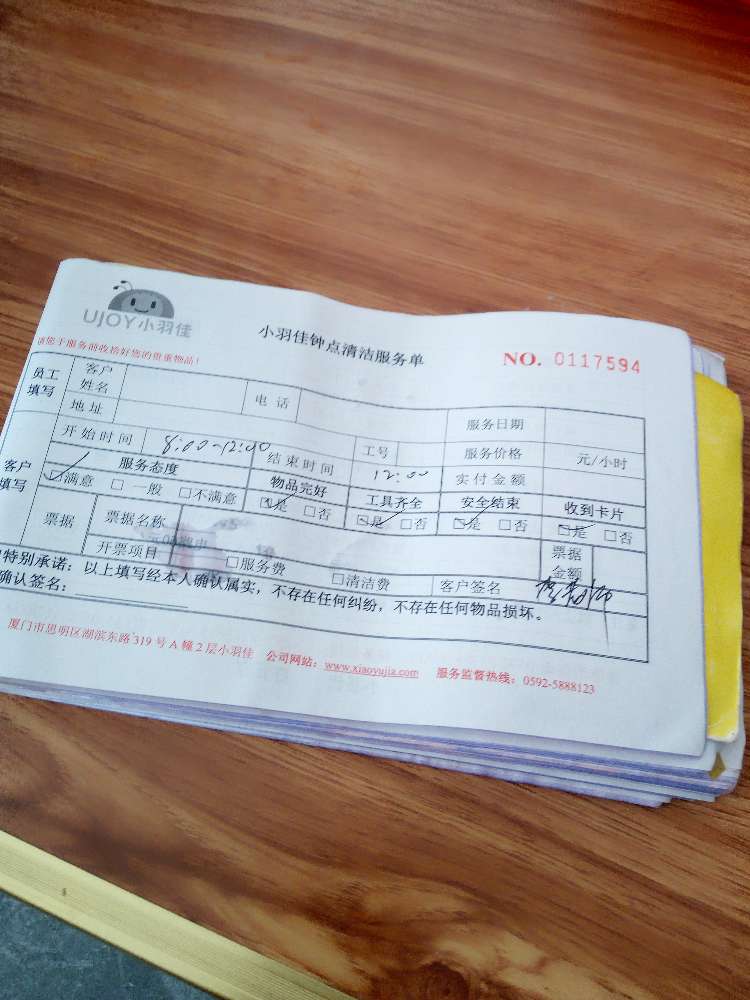 UJOY小羽佳
小羽佳钟点清洁服务单
NO. 0117594
请您于服务前收拾好您的贵重物品！
员工填写 客户姓名 电话 服务日期
地址 工号 服务价格 元/小时
开始时间 8:00-12:00 结束时间 12:00 实付金额
客户填写 服务态度 物品完好 工具齐全 安全结束 收到卡片
☑满意 □一般 □不满意 ☑是 □否 ☑是 □否 ☑是 □否 ☑是 □否
票据 票据名称 票据金额
开票项目 □服务费 □清洁费 客户签名
特别承诺：以上填写经本人确认属实，不存在任何纠纷，不存在任何物品损坏。
确认签名：
厦门市思明区湖滨东路319号A幢2层小羽佳 公司网站：www.xiaoyujia.com 服务监督热线：0592-5888123